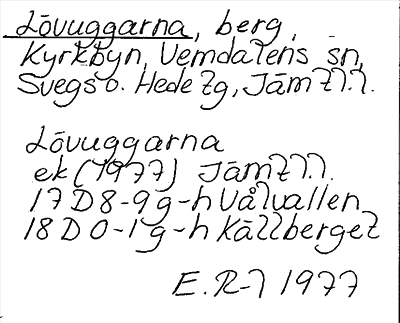 Lövuggarna, berg,
Kyrkbyn, Vemdalens sn,
Svegs o. Hede tg, Jämtl.l.
Lövuggarna
ek (1977) Jämtl.l.
17D8-9g-h Vålvallen
18D0-1g-h Källberget
E.R-l 1977